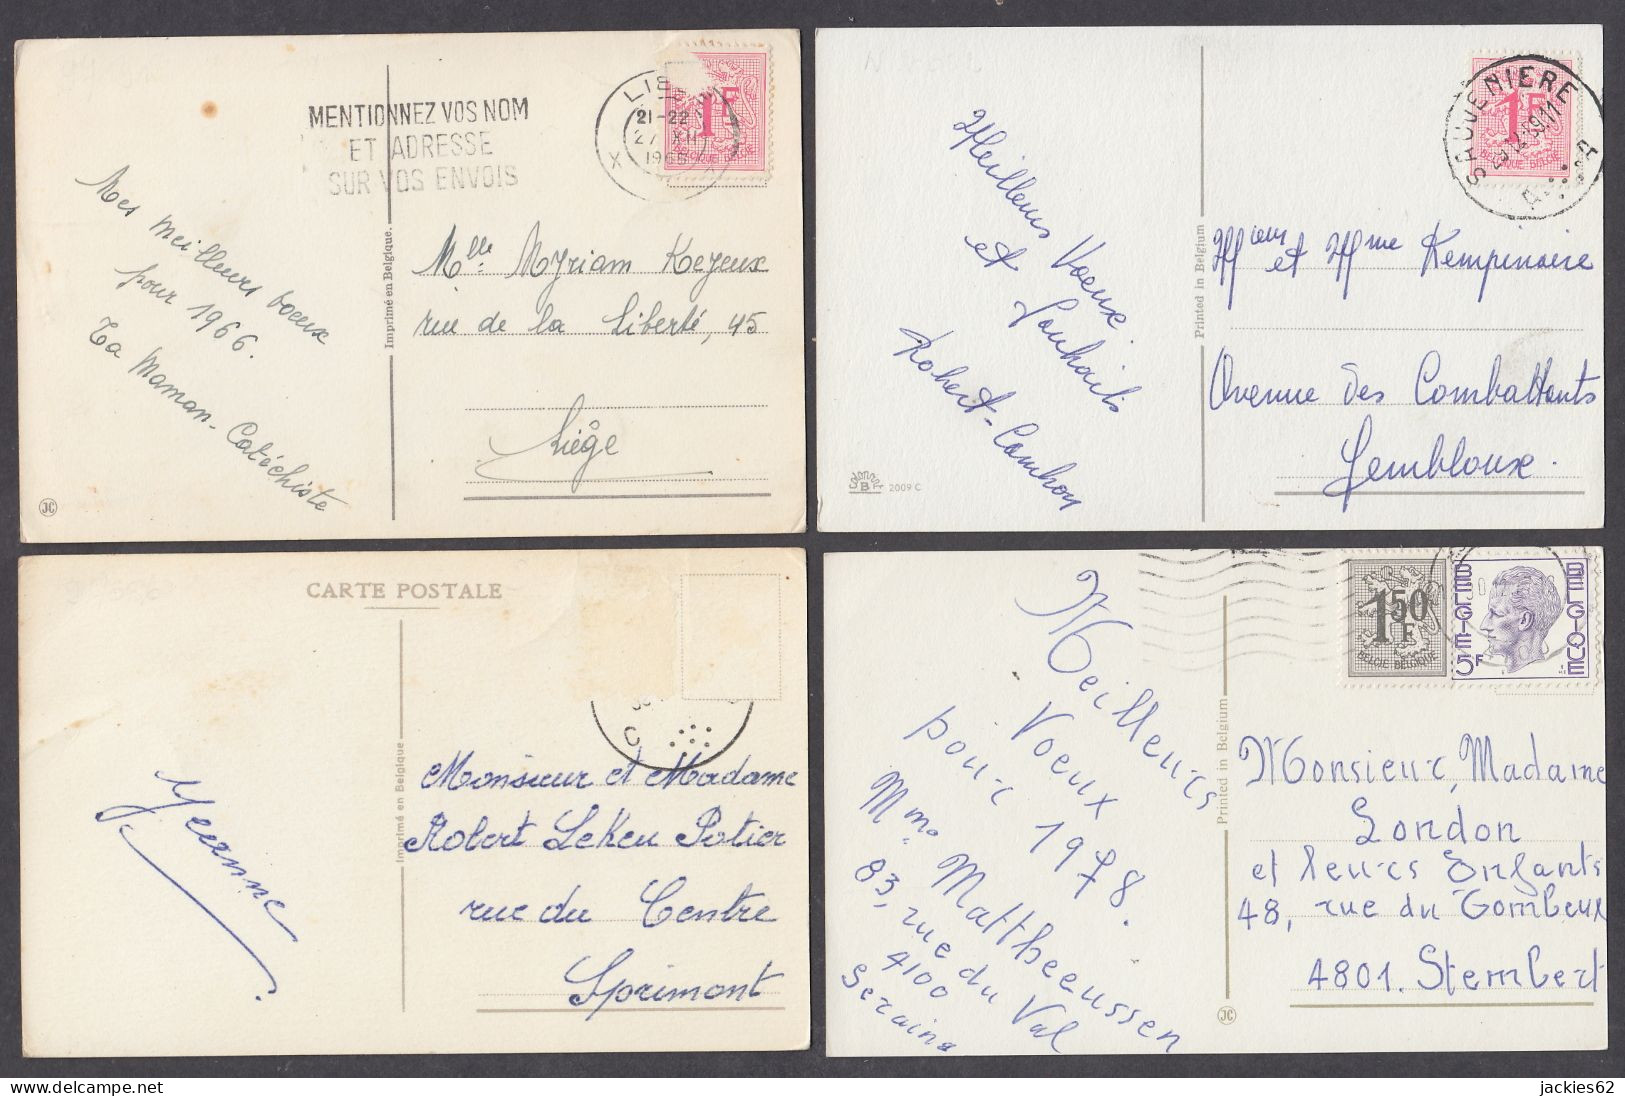 MENTIONNEZ VOS NOM
ET ADRESSE
SUR VOS ENVOIS
21-22
1F
BELGIQUE BELGIË
Mes meilleurs voeux
pour 1966.
Ta Maman-Catéchiste
Imprimé en Belgique.
Mlle Myriam Keyeux
rue de la Liberté, 45
Liège
JC
SAUVENIERE
1F
Meilleurs Voeux
et Souhaits
Robert-Camhoy
Printed in Belgium
Mieur et Mme Kempinaire
Avenue des Combattants
Gembloux.
Colorprint
B
2009 C
CARTE POSTALE
Jeannine
Imprimé en Belgique
C
Monsieur et Madame
Robert Lekeu Potier
rue du Centre
Sprimont
1F50
BELGIE BELGIQUE
BELGIË
BELGIQUE
5F
Meilleurs
Voeux
pour 1978.
Mme Mattheeussen
83, rue du Val
4100
Seraing
Printed in Belgium
Monsieur, Madame
London
et leurs Enfants
48, rue du Gombeux
4801. Stembert
JC
jackies62